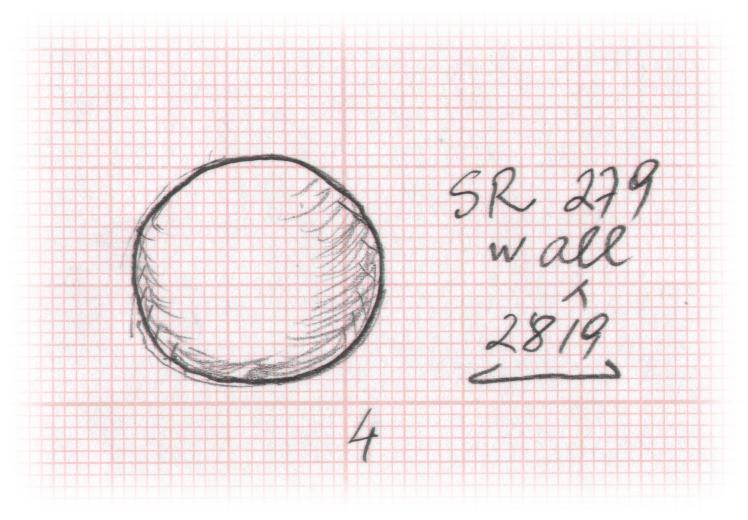 SR 279
wall
2819
4